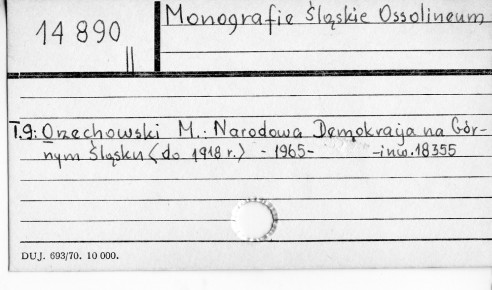 Monografie Śląskie Ossolineum
14 890
II
T.9: Orzechowski M.: Narodowa Demokracja na Gór-
nym Śląsku (do 1918 r.) - 1965- -inw. 18355
DUJ. 693/70. 10 000.